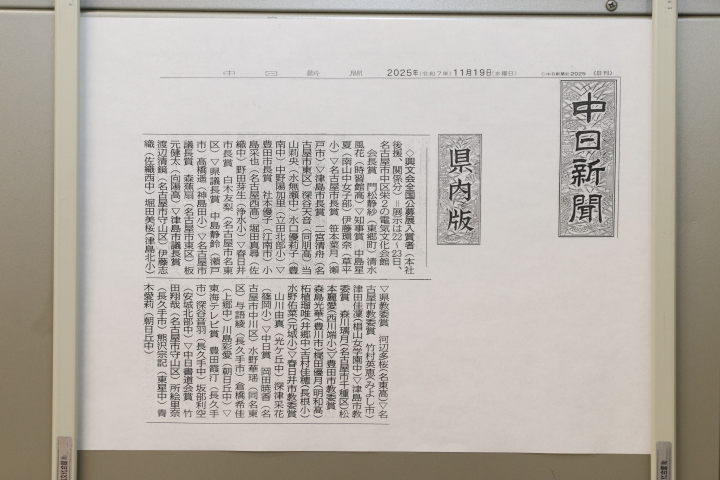 中日新聞
中日新聞
2025年(令和7年)11月19日(水曜日)
(日刊)
県内版
◇興文会全国公募展入賞者(本社
後援、関係分)=展示は22〜23日、
名古屋市中区栄2の電気文化会館
会長賞 門松静紗(東郷町)清水
風花(時習館高)▽知事賞 中島星
夏(南山中女子部)伊藤環奈(草平
小)▽名古屋市長賞 笹本菜月(瀬
戸市)▽津島市長賞 二宮清舟(名
古屋市東区)深谷天音(同朋高)当
山莉央(水無瀬中)水口優莉子(豊
南中)中野陽加里(立田北部小)▽
豊田市長賞 社本優子(江南市)小
島采也(名古屋西高)堀田真尋(佐
織中)野田芽生(浄水小)▽春日井
市長賞 白木友梨(名古屋市名東
区)▽県議長賞 中島静鈴(瀬戸
市)高橋遥(神島田小)▽名古屋市
議長賞 森蕉扇(名古屋市東区)板
元健太(向陽高)▽津島市議長賞
渡辺清鏡(名古屋市守山区)伊藤志
織(佐織西中)堀田美桜(津島北小)
▽県教委賞 河辺多桜(名東高)▽名
古屋市教委賞 竹村英恵(みよし市)
津田佳凜(椙山女学園中)▽津島市教
委賞 森川璃月(名古屋市千種区)松
本麗愛(西川端小)▽豊田市教委賞
森島光華(豊川市)梶田優月(明和高)
柘植瑠唯(井郷中)百村佳穂(長根小)
水野佑菜(元城小)▽春日井市教委賞
山川由真(光ケ丘中)深津采花
(篠岡小)▽中日賞 岡田暁香(名
古屋市中川区)水野華瑶(同名東
区)与語綾(長久手市)倉橋希佳
(上郷中)川島彩愛(朝日丘中)▽
東海テレビ賞 豊田霞汀(長久手
市)深谷音羽(長久手中)坂部利空
(安城北部中)▽中日書道会賞 竹
田翔哉(名古屋市守山区)所絵里奈
(長久手市)熊沢宗記(東星中)青
木愛莉(朝日丘中)